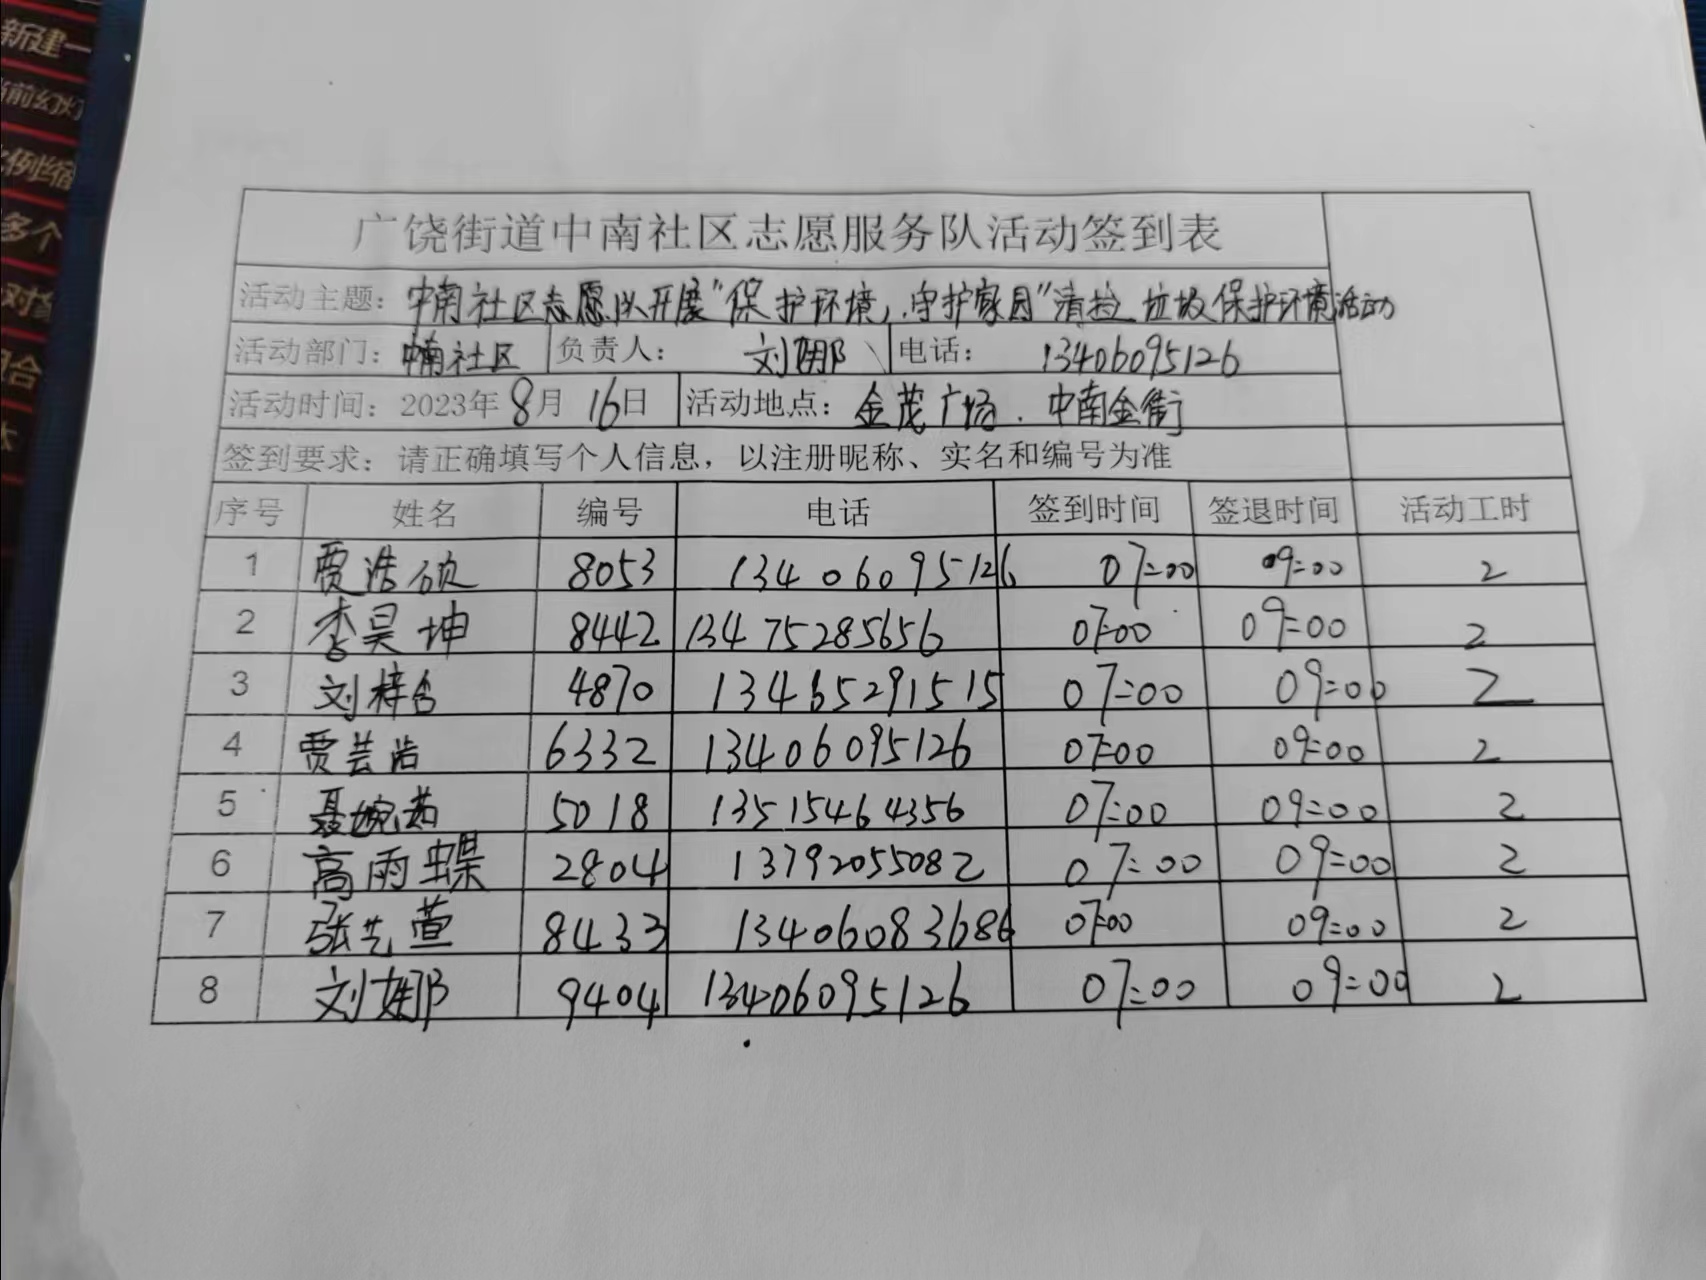 新建一
当前幻灯
比例缩
多个
对象
组合
广饶街道中南社区志愿服务队活动签到表
活动主题：中南社区志愿队开展“保护环境，守护家园”清捡垃圾保护环境活动
活动部门：中南社区 负责人：刘娜 电话：13406095126
活动时间：2023年8月16日 活动地点：金茂广场．中南金街
签到要求：请正确填写个人信息，以注册昵称、实名和编号为准
序号 姓名 编号 电话 签到时间 签退时间 活动工时
1 贾浩硕 8053 13406095126 07:00 09:00 2
2 李昊坤 8442 13475285656 07:00 09:00 2
3 刘梓含 4870 13465291515 07:00 09:00 2
4 贾芸浩 6332 13406095126 07:00 09:00 2
5 聂婉茹 5018 13515464356 07:00 09:00 2
6 高雨蝶 2804 13792055082 07:00 09:00 2
7 张艺萱 8433 13406083686 07:00 09:00 2
8 刘娜 9404 13406095126 07:00 09:00 2